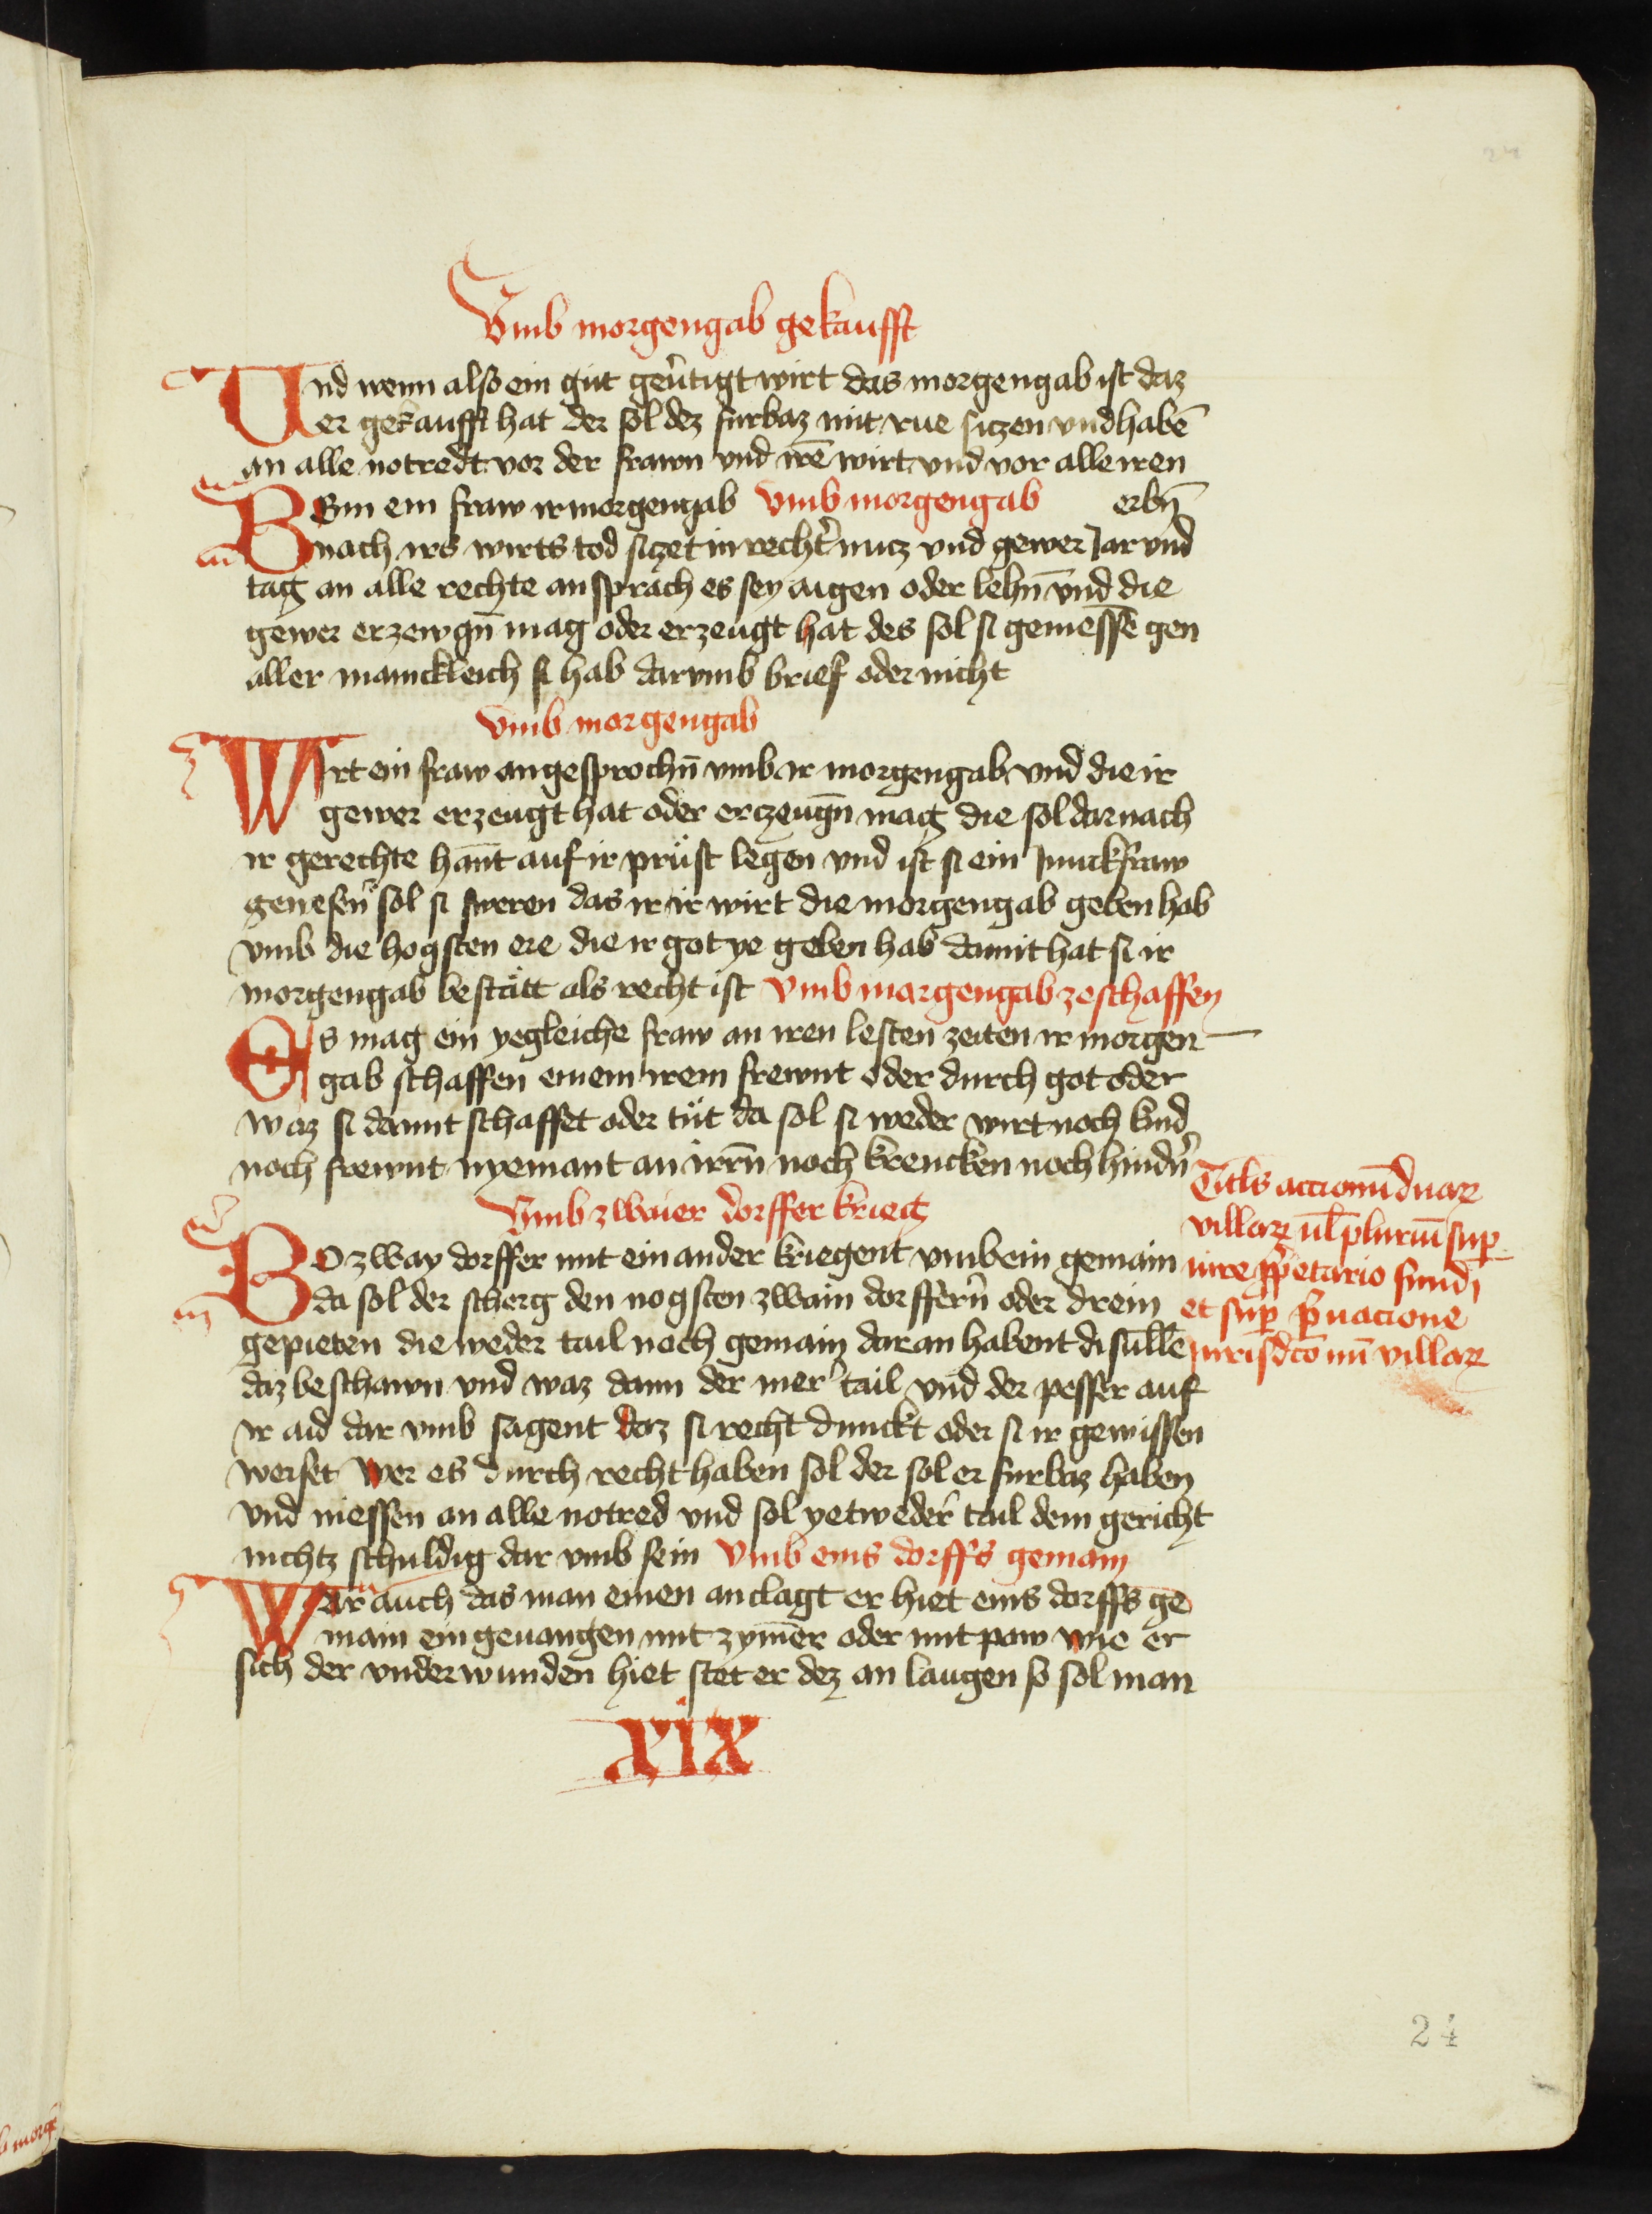 24
Vmb morgengab gekaufft
Und wenn also ein gut geuͤtigt wirt das morgengab ist daz
er gekaufft hat der sol dez furbaz mit rue siczen vnd habē
an alle notredt vor der frawn vnd irē wirt vnd vor allē iren
erbn̄
Wenn ein fraw ir morgengab Vmb morgengab
nach irs wirts tod siczet in rechtͬ nucz vnd gewer Jar vnd
tag an alle rechte ansprach es sey aigen oder lehn̄ vnd die
gewer erzewgn̄ mag oder erzeugt hat des sol si geniessē gen
aller manickleich si hab darvmb brief oder nicht
Vmb morgengab
Wirt ein fraw angesprochn̄ vmb ir morgengab vnd die ir
gewer erzeugt hat oder erczeugn̄ mag die sol darnach
ir gerechte hant auf ir prüst legen vnd ist si ein Junckfraw
genesen̄ sol si sweren das ir ir wirt die morgengab geben hab
vmb die hogsten ere die ir got ye geben hab damit hat si ir
morgengab bestätt als recht ist Vmb margengab zeschaffen
Es mag ein yegleiche fraw an iren lesten zeiten ir morgen
gab schaffen einem irem frewnt oder durch got oder
waz si damit schaffet oder tüt da sol si weder wirt noch kind
noch frewnt nyemant an irrn̄ noch krencken noch hindn̄
Vmb zwaier dorffer krieg
Wo zway dorffer mit ein ander kriegent vmb ein gemain
da sol der scherg den nogsten zwain dorffern̄ oder drein
gepieten die weder tail noch gemain daran habent di sullē
daz beschawn vnd waz dann der merͬ tail vnd der pesser auf
ir aid dar vmb sagent daz si recht dunckt oder si ir gewissen
weiset wer es durch recht haben sol der sol er furbaz haben
vnd niessen an alle notred vnd sol yetwederͬ tail dem gericht
nichtz schuldig dar vmb sein Vmb eins dorffs gemain
War auch das man einen anclagt er hiet eins dorffs ge
main eingeuangen mit zym̄er oder mit paw wie er
sich der vnderwunden hiet stet er dez an laugen so sol man
Titl̄s accionū duaꝝ
villaꝝ ul̄ pluriū suꝑ
iure ꝓp̄etario fundi
et suꝑ pͥuacione
Jurisdc̄onū villaꝝ
xix
24